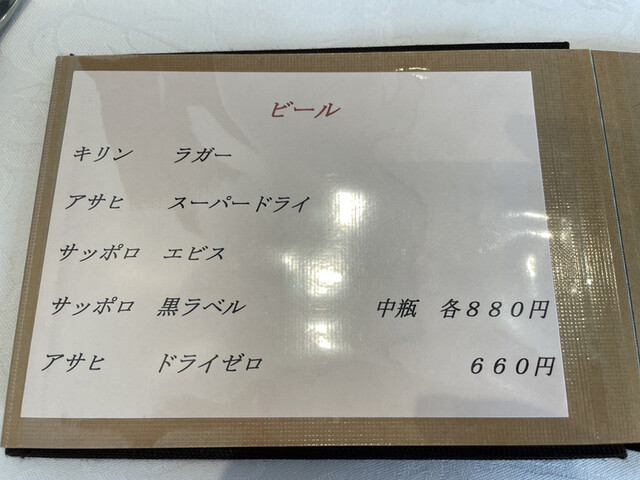 ビール
キリン　ラガー
アサヒ　スーパードライ
サッポロ　エビス
サッポロ　黒ラベル　中瓶　各８８０円
アサヒ　ドライゼロ　６６０円